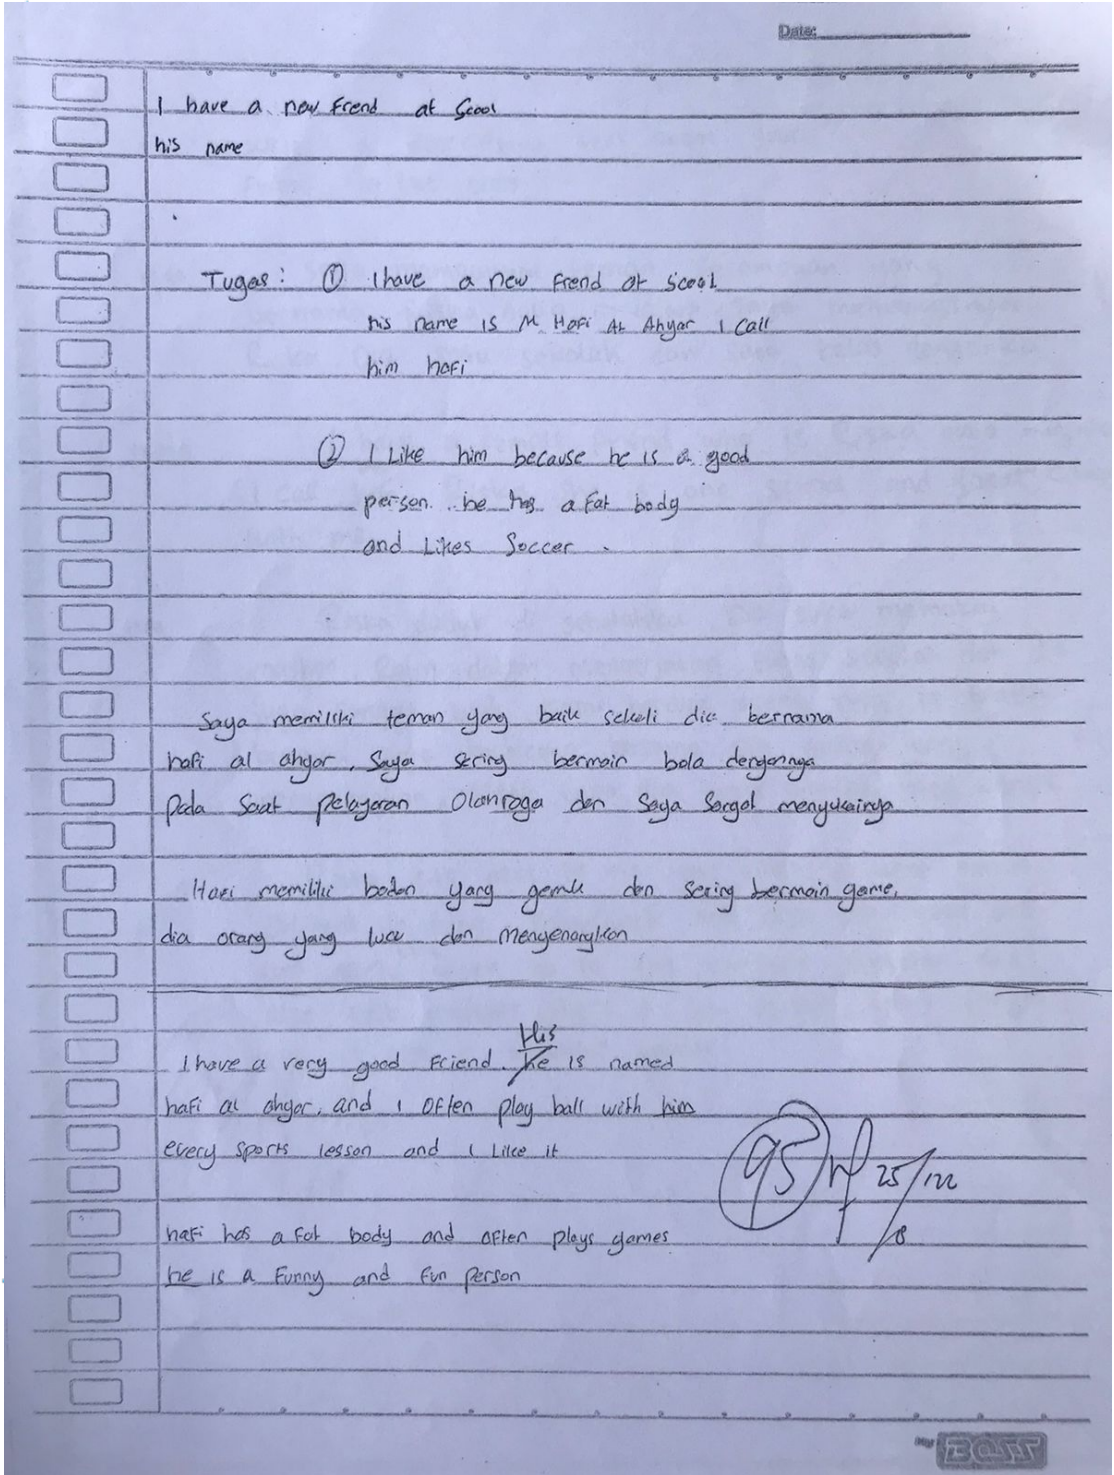 Date:
I have a new frend at Scool
his name
Tugas : ① I have a new frend at Scool
his name is M Hafi Al Ahyar I call
him hafi
② I Like him because he is a good
person. he has a fat body
and Likes Soccer.
Saya memiliki teman yang baik sekali dia bernama
hafi al ahyar, Saya sering bermain bola dengannya
pada Saat pelajaran Olahraga dan Saya Sangat menyukainya
Hafi memiliki badan yang gemuk dan Sering bermain game,
dia orang yang lucu dan menyenangkan
His
I have a very good Friend. He is named
hafi al ahyar, and I often play ball with him
every sports lesson and I like it
95 25/
8
hafi has a fat body and often plays games
he is a Funny and fun person
My BOSS